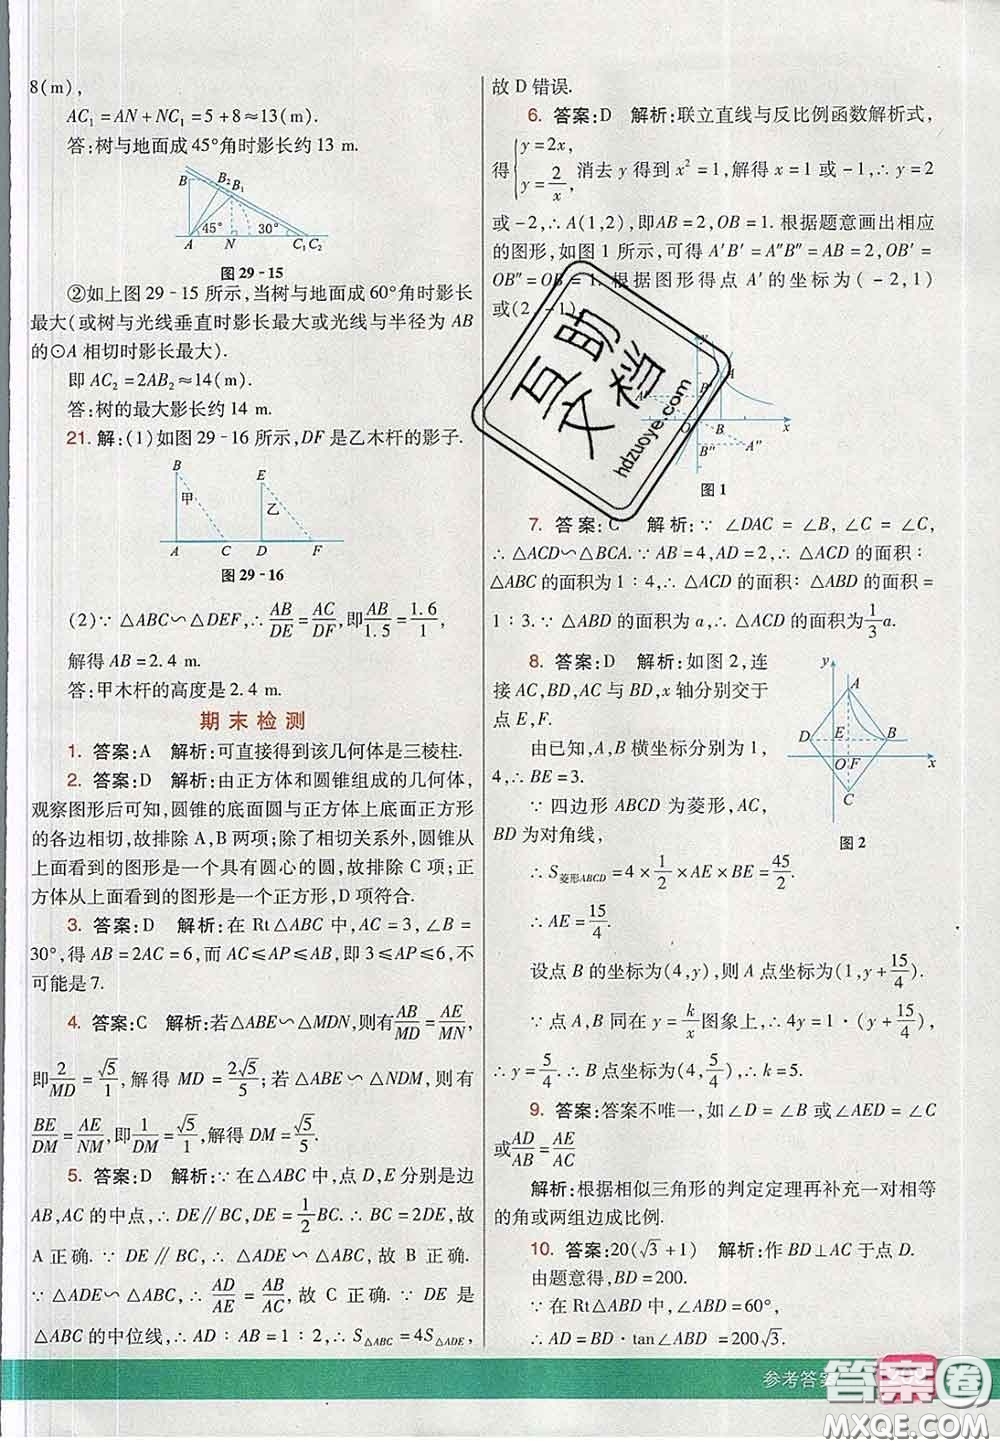 8(m),
AC₁=AN+NC₁=5+8≈13(m).
答:树与地面成45°角时影长约13 m.
B B₂ B₁
45° 30°
A N C₁ C₂
图 29-15
②如上图 29-15 所示,当树与地面成60°角时影长
最大(或树与光线垂直时影长最大或光线与半径为 AB
的⊙A 相切时影长最大).
即 AC₂=2AB₂≈14(m).
答:树的最大影长约 14 m.
21. 解:(1)如图 29-16 所示,DF 是乙木杆的影子.
B E
甲 乙
A C D F
图 29-16
(2)∵△ABC∽△DEF,∴AB/DE=AC/DF,即AB/1.5=1.6/1,
解得 AB=2.4 m.
答:甲木杆的高度是 2.4 m.
期末检测
1. 答案:A 解析:可直接得到该几何体是三棱柱.
2. 答案:D 解析:由正方体和圆锥组成的几何体,
观察图形后可知,圆锥的底面圆与正方体上底面正方形
的各边相切,故排除 A,B 两项;除了相切关系外,圆锥从
上面看到的图形是一个具有圆心的圆,故排除 C 项;正
方体从上面看到的图形是一个正方形,D 项符合.
3. 答案:D 解析:在 Rt△ABC 中,AC=3,∠B=
30°,得 AB=2AC=6,而 AC≤AP≤AB,即 3≤AP≤6,不
可能是 7.
4. 答案:C 解析:若△ABE∽△MDN,则有AB/MD=AE/MN,
即2/MD=√5/1,解得 MD=2√5/5;若△ABE∽△NDM,则有
BE/DM=AE/NM,即1/DM=√5/1,解得 DM=√5/5.
5. 答案:D 解析:∵在△ABC 中,点 D,E 分别是边
AB,AC 的中点,∴DE∥BC,DE=1/2BC,∴BC=2DE,故
A 正确.∵DE∥BC,∴△ADE∽△ABC,故 B 正确.
∵△ADE∽△ABC,∴AD/AE=AB/AC,故 C 正确.∵DE 是
△ABC 的中位线,∴AD:AB=1:2,∴S△ABC=4S△ADE,
故 D 错误.
6. 答案:D 解析:联立直线与反比例函数解析式,
得{y=2x, y=2/x, 消去 y 得到 x²=1,解得 x=1 或-1,∴y=2
或-2,∴A(1,2),即AB=2,OB=1.根据题意画出相应
的图形,如图 1 所示,可得 A′B′=A″B″=AB=2,OB′=
OB″=OB=1.根据图形得点 A′的坐标为(-2,1)
或(2,-1).
A
O B x
B″ A″
图 1
7. 答案:C 解析:∵∠DAC=∠B,∠C=∠C,
∴△ACD∽△BCA.∵AB=4,AD=2,∴△ACD的面积:
△ABC的面积为1:4,∴△ACD的面积:△ABD的面积=
1:3.∵△ABD 的面积为 a,∴△ACD 的面积为1/3a.
8. 答案:D 解析:如图 2,连
接 AC,BD,AC 与 BD,x 轴分别交于
点 E,F.
由已知,A,B 横坐标分别为 1,
4,∴BE=3.
∵四边形 ABCD 为菱形,AC,
BD 为对角线,
y A
D E B
O F x
C
图 2
∴S菱形ABCD=4×1/2×AE×BE=45/2,
∴AE=15/4.
设点 B 的坐标为(4,y),则 A 点坐标为(1,y+15/4).
∵点 A,B 同在 y=k/x图象上,∴4y=1·(y+15/4),
∴y=5/4.∴B 点坐标为(4,5/4),∴k=5.
9. 答案:答案不唯一,如∠D=∠B 或∠AED=∠C
或AD/AB=AE/AC
解析:根据相似三角形的判定定理再补充一对相等
的角或两组边成比例.
10. 答案:20(√3+1) 解析:作 BD⊥AC 于点 D.
由题意得,BD=200.
∵在 Rt△ABD 中,∠ABD=60°,
∴AD=BD·tan∠ABD=200√3.
参考答案
互助文档
hdzuoye.com
答案圈
MXQE.COM